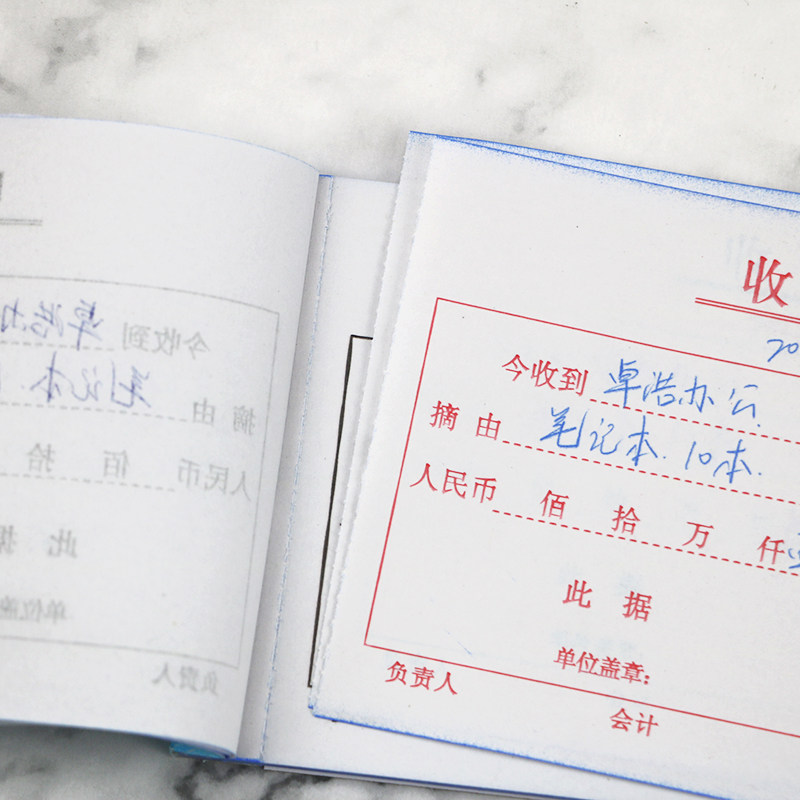 收
20
今收到 卓浩办公
摘由 笔记本.10本.
人民币 佰 拾 万 仟
此据
单位盖章:
负责人
会计
今收到 卓浩办
摘由 笔记本.
人民币 佰 拾
此据
单位盖
负责人